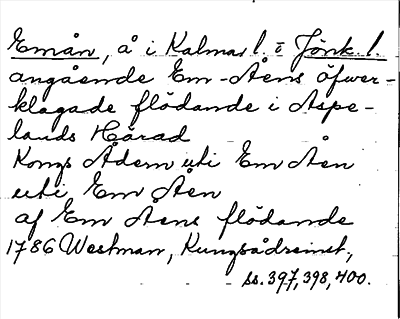 Emån, å i Kalmar l. & Jönk. l.
angående Em-Åens öfwer-
klagade flödande i Aspe-
lands Härad
Kongs Ådern uti Em Åen
uti Em Åen
af Em Åens flödande
1786 Westman, Kungsådreinst.,
ss. 397, 398, 400.